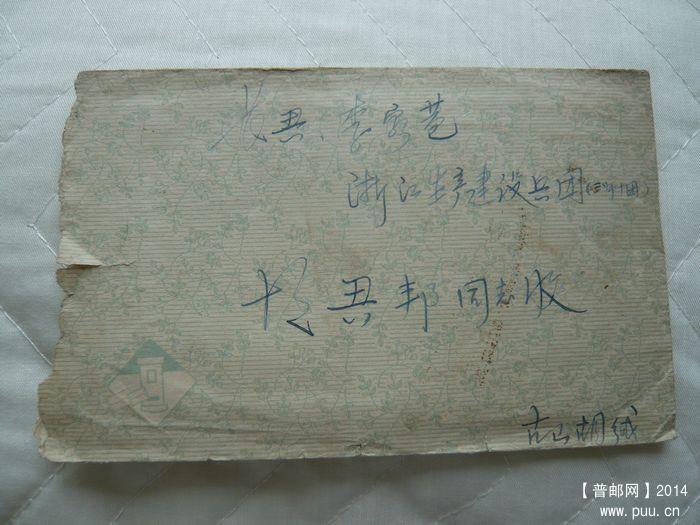 长兴、李家巷
浙江生产建设兵团(三师十团)
兴邦同志收
古山胡绒
【普邮网】2014
www.puu.cn